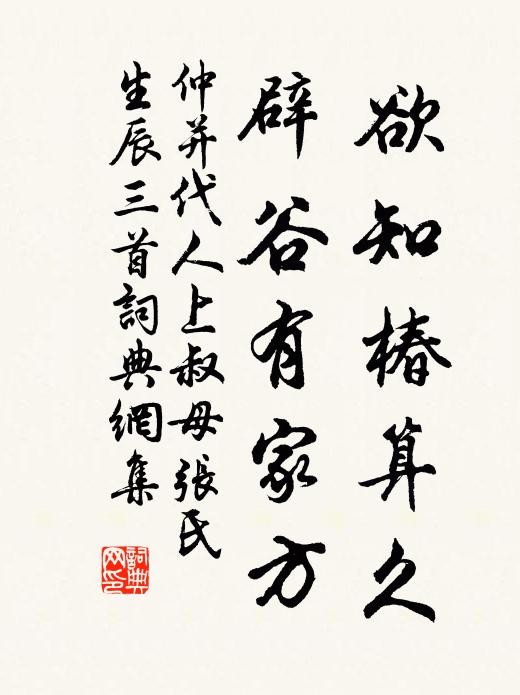 欲知椿算久
辟谷有家方
仲并代人上叔母張氏
生辰三首詞典網集
詞典网印